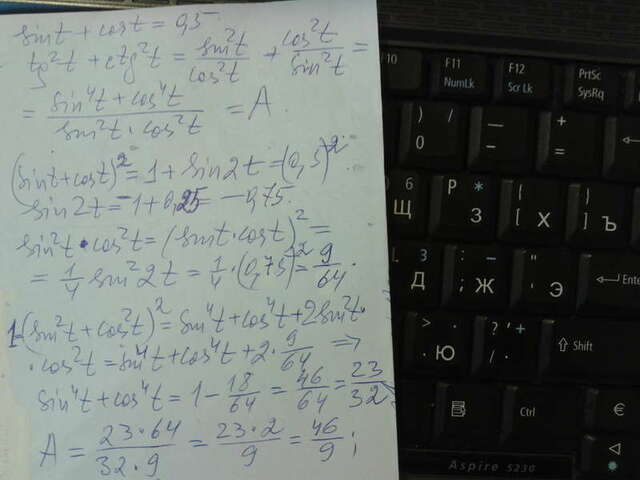 sint + cost = 0,5
tg²t + ctg²t = sin²t/cos²t + cos²t/sin²t =
= (sin⁴t + cos⁴t)/(sin²t · cos²t) = A.
(sint + cost)² = 1 + sin2t = (0,5)².
sin2t = -1 + 0,25 = -0,75.
sin²t · cos²t = (sint · cost)² =
= 1/4 sin²2t = 1/4 · (0,75)² = 9/64.
1 = (sin²t + cos²t)² = sin⁴t + cos⁴t + 2sin²t ·
· cos²t = sin⁴t + cos⁴t + 2 · 9/64 ⇒
sin⁴t + cos⁴t = 1 - 18/64 = 46/64 = 23/32
A = (23 · 64)/(32 · 9) = (23 · 2)/9 = 46/9 ;
F10
F11 NumLk
F12 Scr Lk
PrtSc SysRq
) / 0
— -
+ =
6 Щ
P * З
{ [ Х
} ] Ъ
L 3 Д
: ; Ж -
" ' Э
Enter
> . Ю
? , / . +
⇧ Shift
Ctrl
€
Aspire 5230